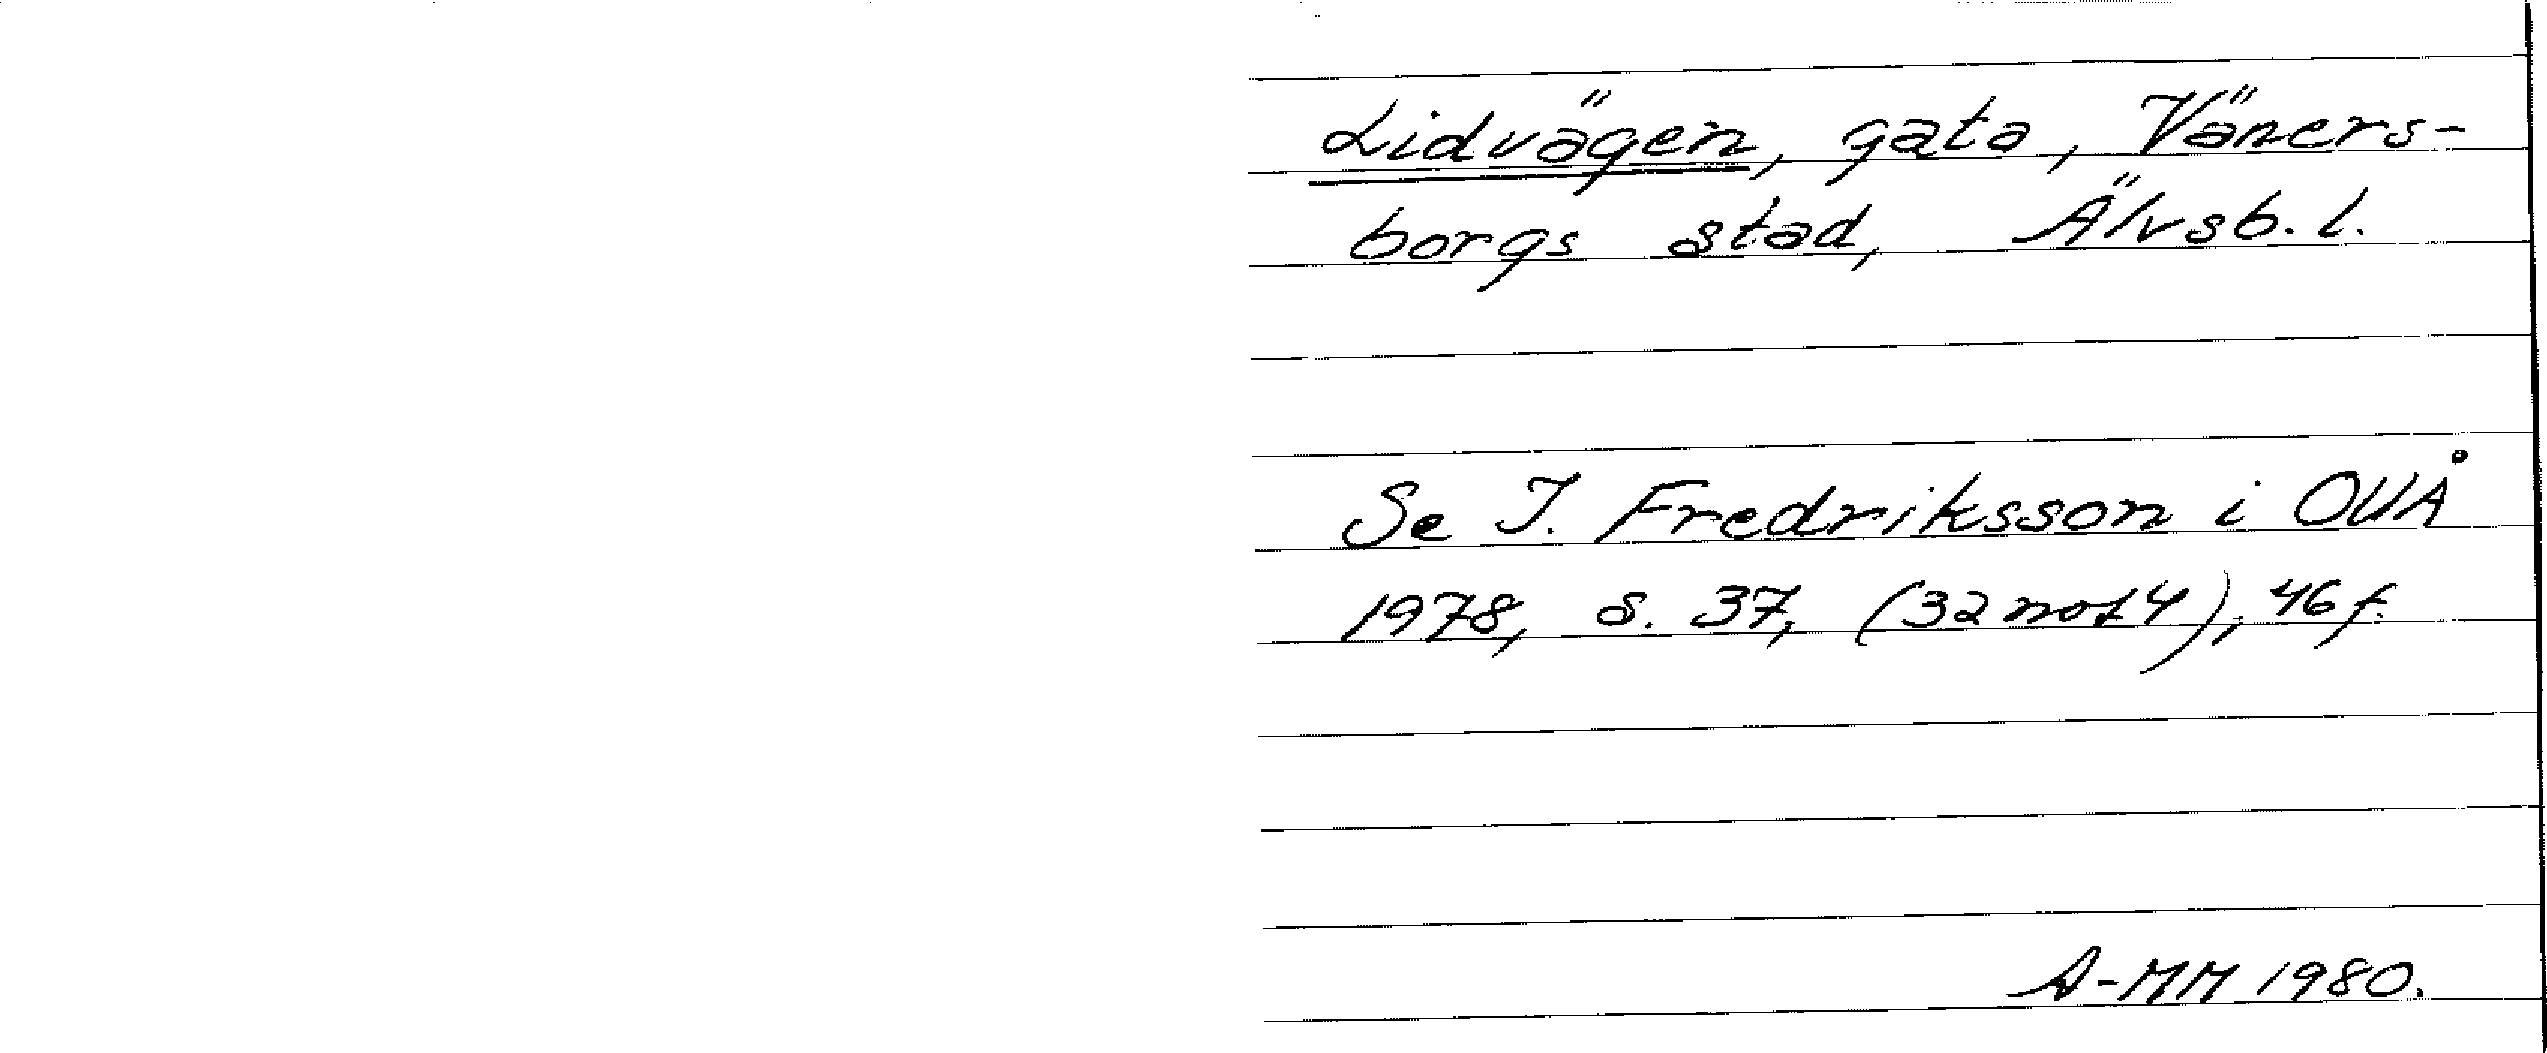 Lidvägen, gata, Väners-
borgs stad, Älvsb. l.
Se I. Fredriksson i OUÅ
1978, s. 37, (32 not 4), 46 f.
A-MM 1980.